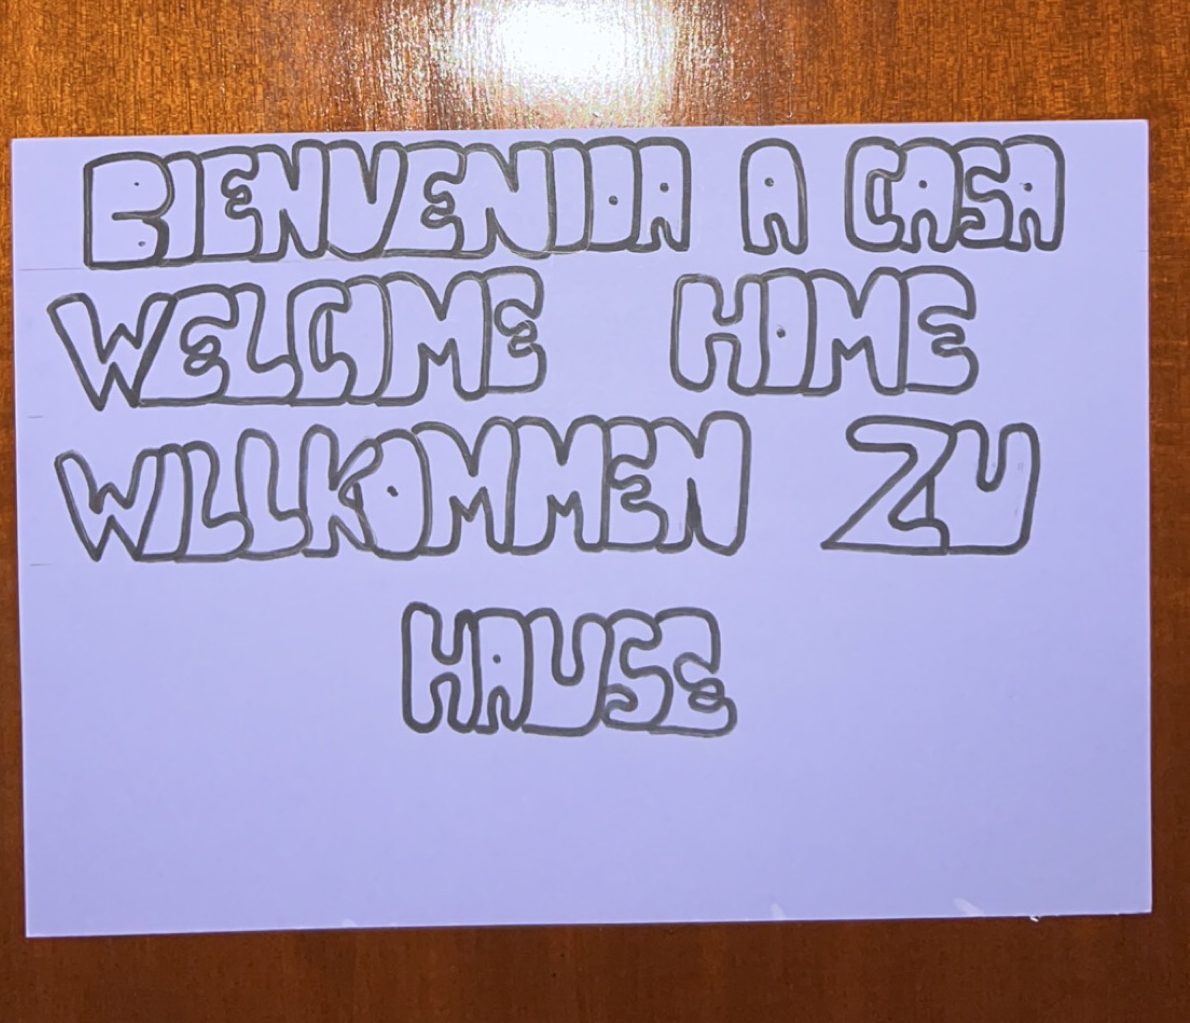 BIENVENIDA A CASA
WELCOME HOME
WILLKOMMEN ZU
HAUSE